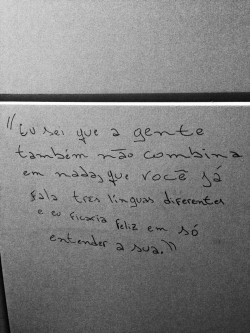 "Eu sei que a gente
também não combina
em nada, que você já
fala tres linguas diferentes
e eu ficaria feliz em só
entender a sua."